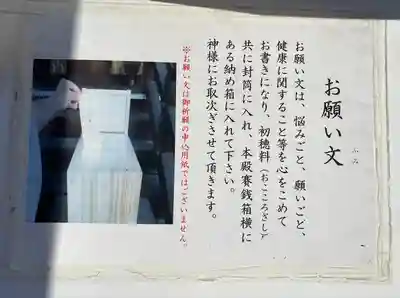 お願い文
ふみ
お願い文は、悩みごと、願いごと、
健康に関すること等を心をこめて
お書きになり、初穂料（お・こころざし）
共に封筒に入れ、本殿賽銭箱横に
ある納め箱に入れて下さい。
神様にお取次ぎさせて頂きます。
※お願い文は御祈願の申込用紙ではございません。